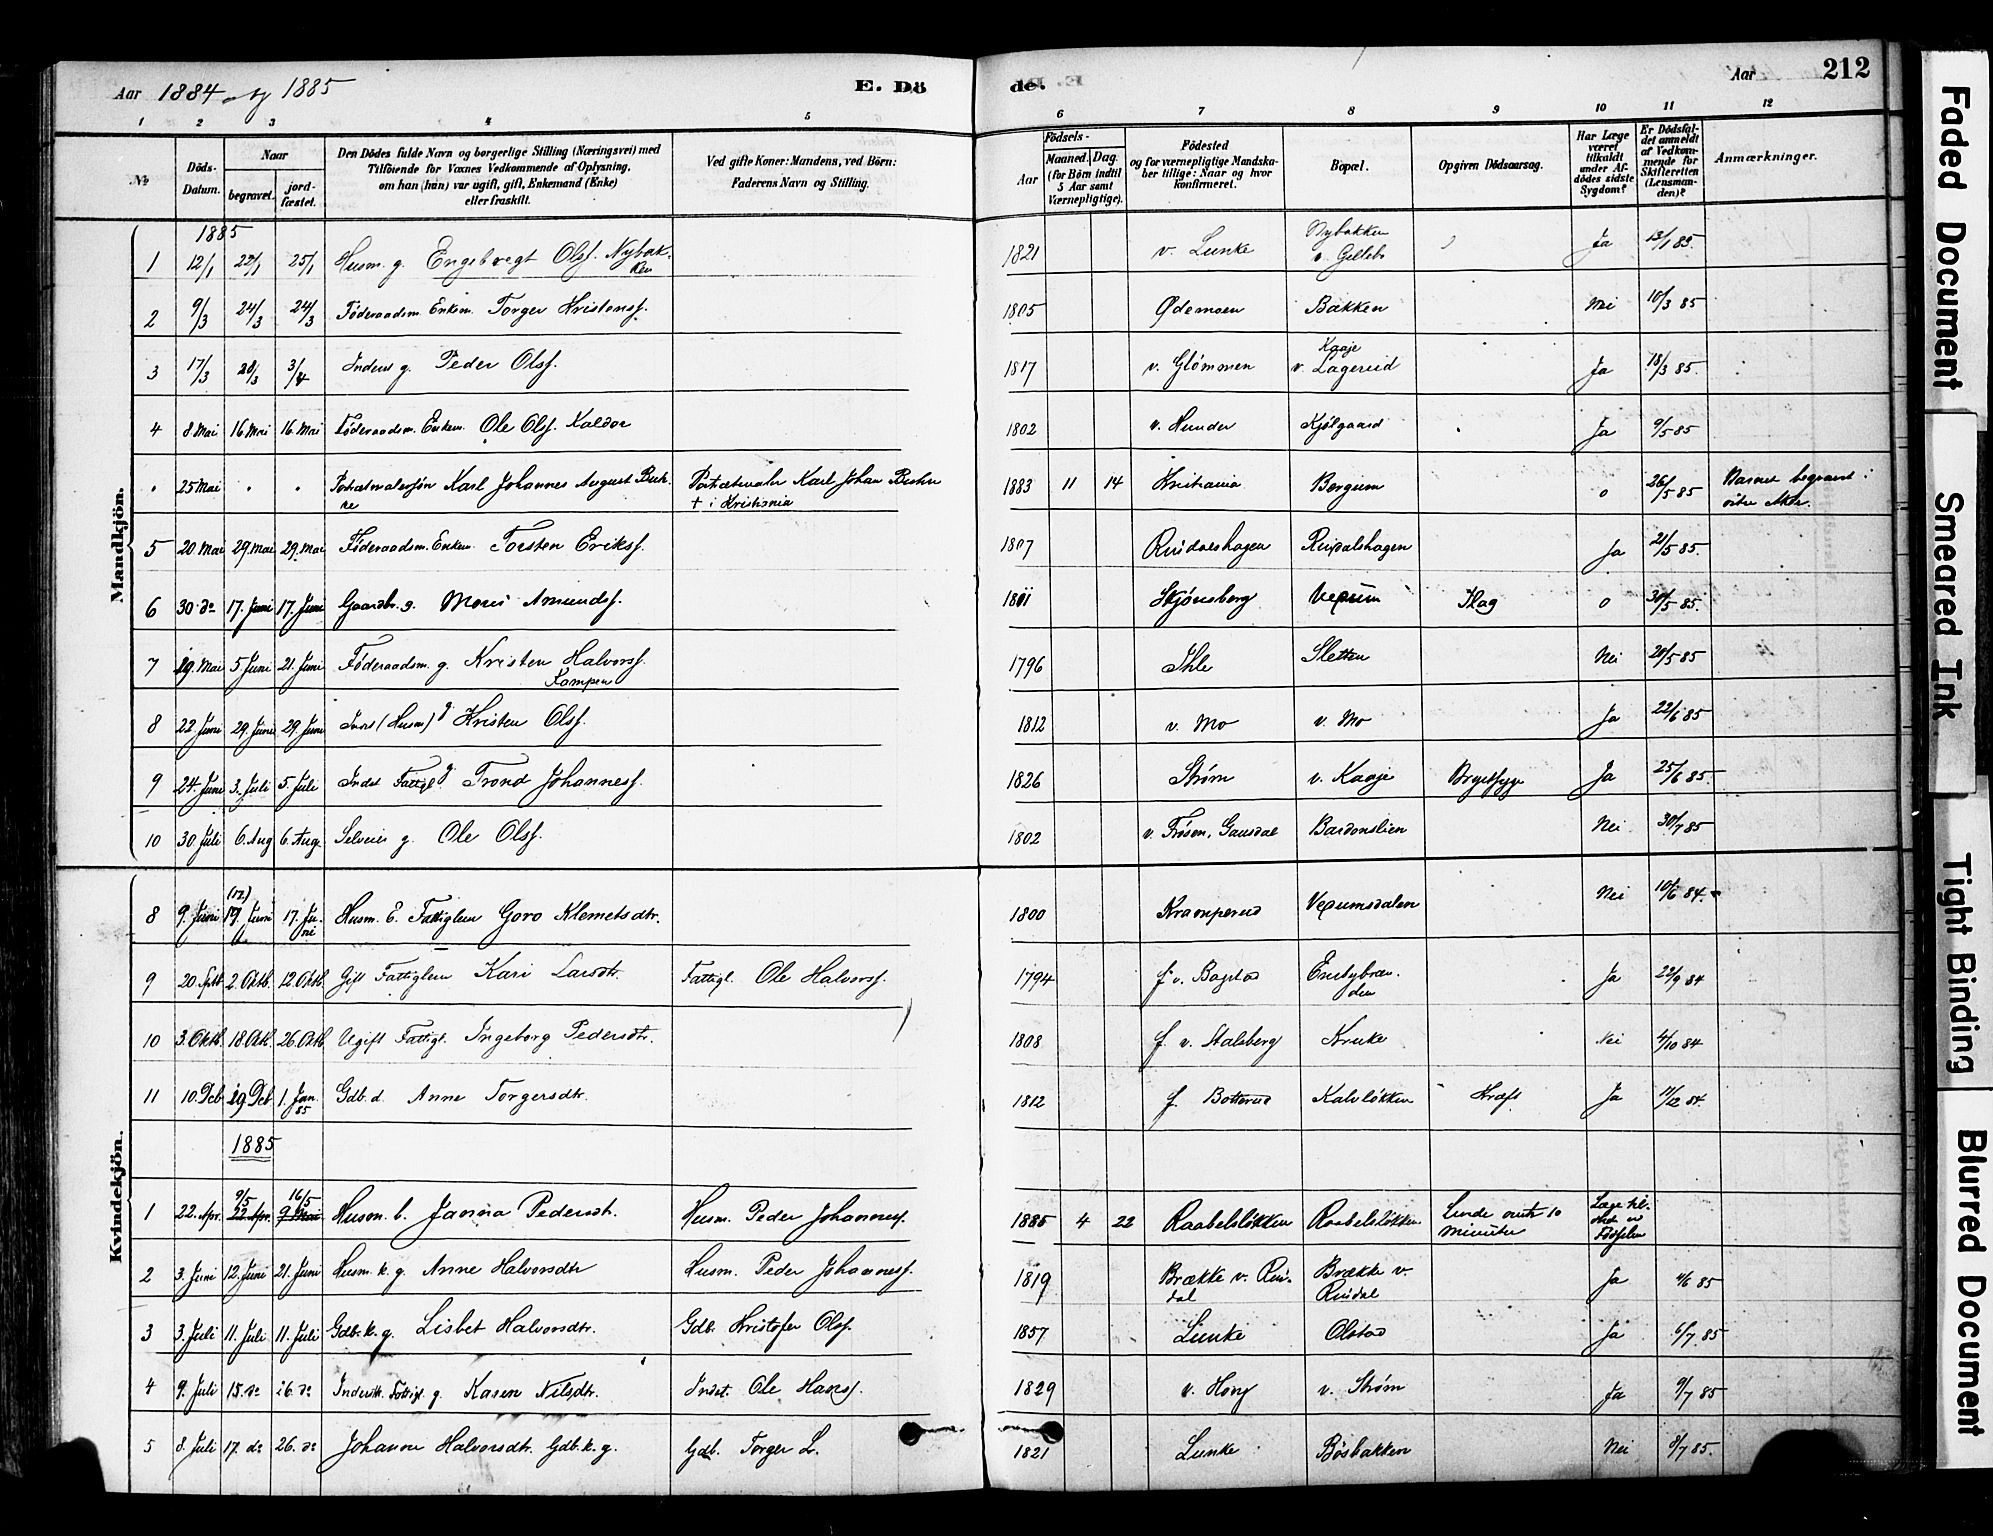 Aar 1884 og 1885
E. Dö
de.
Aar
212
1 2 3 4 5
6 7 8 9 10 11 12
№
Döds-
Datum.
Naar
begravet.
jord-
fæstet.
Den Dödes fulde Navn og borgerlige Stilling (Næringsvei) med
Tilföiende for Voxnes Vedkommende af Oplysning,
om han (hun) var ugift, gift, Enkemand (Enke)
eller fraskilt.
Ved gifte Koner: Mandens, ved Börn:
Faderens Navn og Stilling.
Födsels-
Aar
Maaned. Dag.
(for Börn indtil
5 Aar samt
Værnepligtige).
Födested
og for værnepligtige Mandska-
ber tillige: Naar og hvor
konfirmeret.
Bopæl.
Opgiven Dödsaarsag.
Har Læge
været
tilkaldt
under Af-
dödes sidste
Sygdom?
Er Dödsfal-
det anmeldt
af Vedkom-
mende for
Skifteretten
(Lensman-
den)?
Anmærkninger.
Mandkjön.
1885
1 12/1 22/1 25/1 Husm. g. Engebregt Olsf. Nybak-
ken
1821 v. Lunke Nybakken
v. Gillebo Ja 13/1 85.
2 9/3 24/3 24/3 Föderaadsm. Enkem. Torger Kristensf.
1805 Ødemoen Bakken Nei 10/3 85
3 17/3 28/3 3/4 Inderst g. Peder Olsf.
1817 v. Glömmen Kaaje
v. Lagerud Ja 18/3 85.
4 8 Mai 16. Mai 16. Mai Föderaadsm. Enkem. Ole Olsf. Kaldor
1802 v. Hunder Kjølgaard Ja 9/5 85
" 25 Mai " " Portrætmalersøn Karl Johannes August
Portrætmaler Karl Johan
+ i Kristiania
1883 11 14 Kristiania Borgum o 26/5 85 Barnet begravet i
østre Aker.
5 20 Mai 29. Mai 29. Mai Föderaadsm. Enkem. Torsten Eriksf.
1807 Rindalshagen Rindalshagen Ja 21/5 85.
6 30 do 17. Juni 17. Juni Gaardbr. g. Amundsf.
1801 Skjönsberg Slag o 30/5 85.
7 29. Mai 5. Juni 21. Juni Föderaadsm. g. Kristen Halvorsf.
Kampen
1796 Ihle Sletten Nei 20/5 85
8 22 Juni 29. Juni 29. Juni (Husm) g Kristen Olsf.
1812 v. Mo v. Mo Ja 22/6 85
9 24. Juni 3. Juli 5. Juli Indst Fattigl g Trond Johannesf.
1826 Ström v. Kaaje Brystsyge Ja 25/6 85.
10 30. Juli 6. Aug 6. Aug. Selveier g. Ole Olsf.
1802 v. Gausdal Nei 30/7 85
Kvindekjön.
8 9. Juni 19. Juni 17. Ju-
ni Husm. E. Fattiglem Goro Klemetsdtr.
1800 Kramperud Nei 10/6 84.
9 20. Sptb 2. Oktb. 12. Oktb. Gift Fattiglem Kari Larsdtr. Fattigl. Ole Halvorsf.
1794 f v. Ja 22/9 84
10 3. Oktb. 18. Oktb. 26. Oktb Ugift Fattigl. Ingeborg Pedersdtr.
1808 f. v. Stalsberg Kruke Nei 4/10 84
11 10. Dcb 29 Dcb 1. Jan.
85 Gdb. d. Anne Torgersdtr.
1812 f. Botterud Kalvløkken Kræft Ja 11/12 84.
1885
1 22. Apr. 9/5 22 Apr. 16/5 9 Mai Husm. b. Janna Pedersdt. Husm. Peder Johannesf.
1885 4 22 Raabelsløkken Raabelsløkken Levede omtr 10
Minuter Læge til-
stede v
Fødselen
2 3. Juni 12. Juni 21. Juni Husm. k. g. Anne Halvorsdtr Husm. Peder Johannesf.
1819 Brække v. Rin-
dal Brække v.
Rindal Ja 4/6 85
3 3. Juli 11. Juli 11. Juli Gdb. k. g. Lisbet Halvorsdtr. Gdb. Kristofer Olsf.
1857 Lunke Olstad Ja 6/7 85
4 9. Juli 15. do 26. do Inderstk. Fattigl. g. Karen Nilsdtr. Indst. Ole Hansf.
1829 v. Hong v. Ström Ja 9/7 85
5 8. Juli 17. do 26. do Johanne Halvorsdtr. Gdb. k. g. Gdb. Torger L.
1821 Lunke Bøsbakken Nei 8/7 85.
Faded Document
Smeared Ink
Tight Binding
Blurred Document